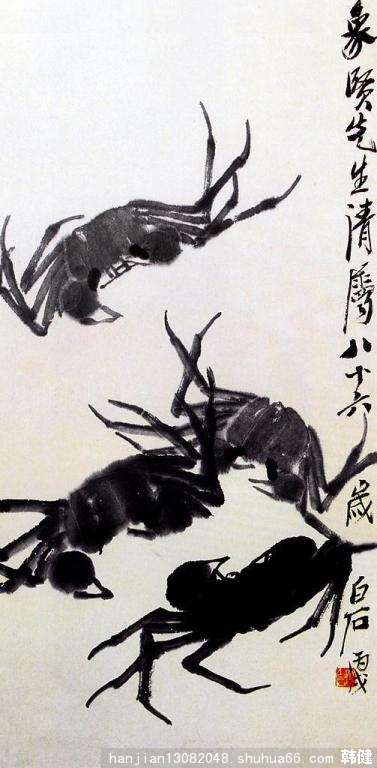 象賢先生清屬八十六歲白石丙戌
hanjian13082048.shuhua66.com 韩健